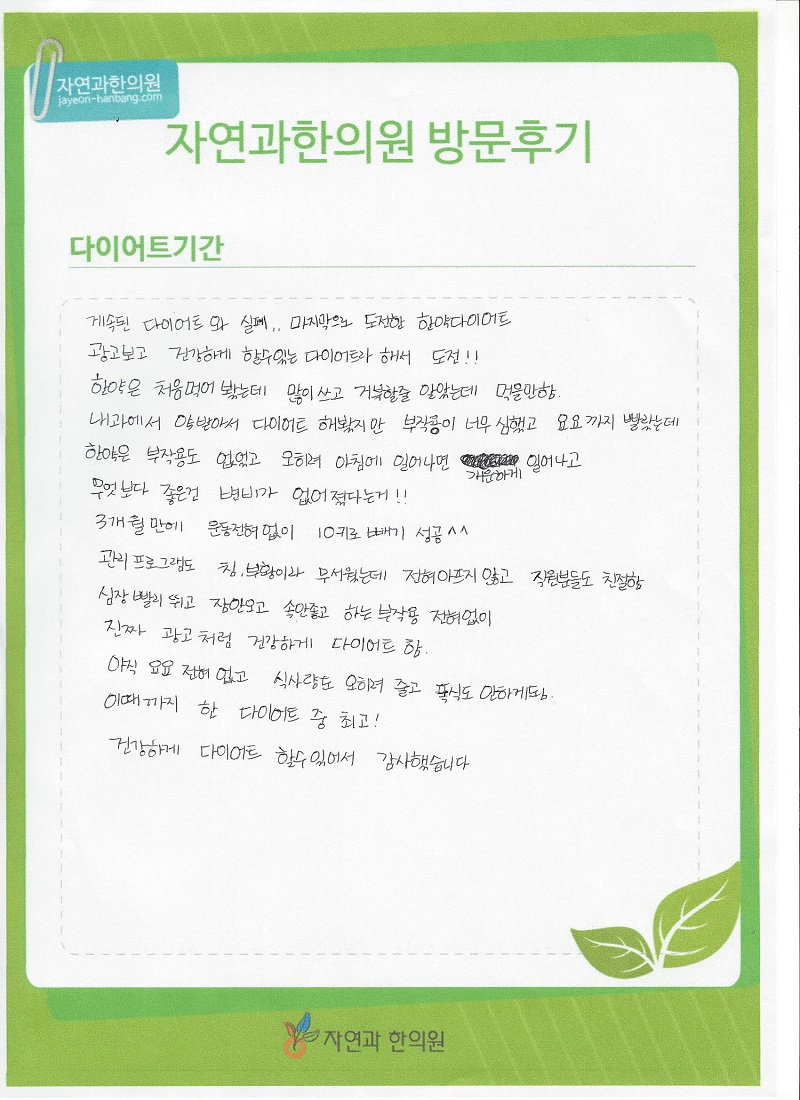 자연과한의원
jayeon-hanbang.com
자연과한의원 방문후기
다이어트기간
계속된 다이어트와 실폐.. 마지막으로 도전한 한약다이어트
광고보고 건강하게 할수있는 다이어트라 해서 도전!!
한약은 처음먹어 봤는데 많이쓰고 거북할줄 알았는데 먹을만함.
내과에서 약받아서 다이어트 해봤지만 부작용이 너무 심했고 요요까지 빨랐는데
한약은 부작용도 없었고 오히려 아침에 일어나면 개운하게 일어나고
무엇보다 좋은건 변비가 없어졌다는거!!
3개월만에 운동전혀없이 10키로 빼기 성공^^
관리프로그램도 침, 부항이라 무서웠는데 전혀아프지 않고 직원분들도 친절함
심장빨리 뛰고 잠안오고 속안좋고 하는 부작용 전혀없이
진짜 광고처럼 건강하게 다이어트 함.
아직 요요 전혀 없고 식사량도 오히려 줄고 폭식도 안하게됨.
이때까지 한 다이어트 중 최고!
건강하게 다이어트 할수있어서 감사했습니다
자연과 한의원